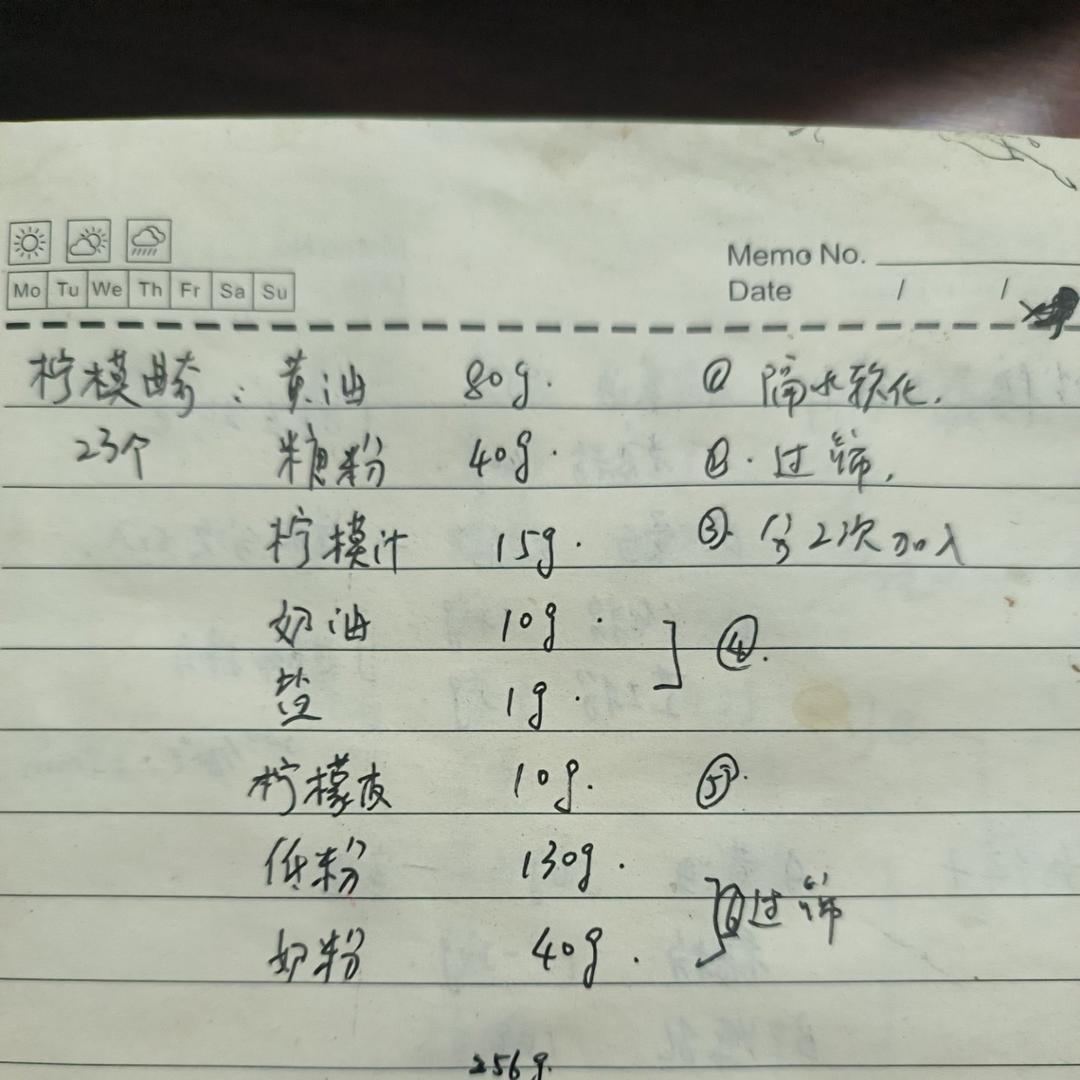 Memo No.
Mo Tu We Th Fr Sa Su
Date / /
柠模曲奇：黄油 80g. ① 隔水软化.
23个 糖粉 40g. ②. 过筛.
柠模汁 15g. ③. 分2次加入
奶油 10g. ④.
盐 1g.
柠檬皮 10g. ⑤.
低粉 130g.
⑥过筛
奶粉 40g.
256g.